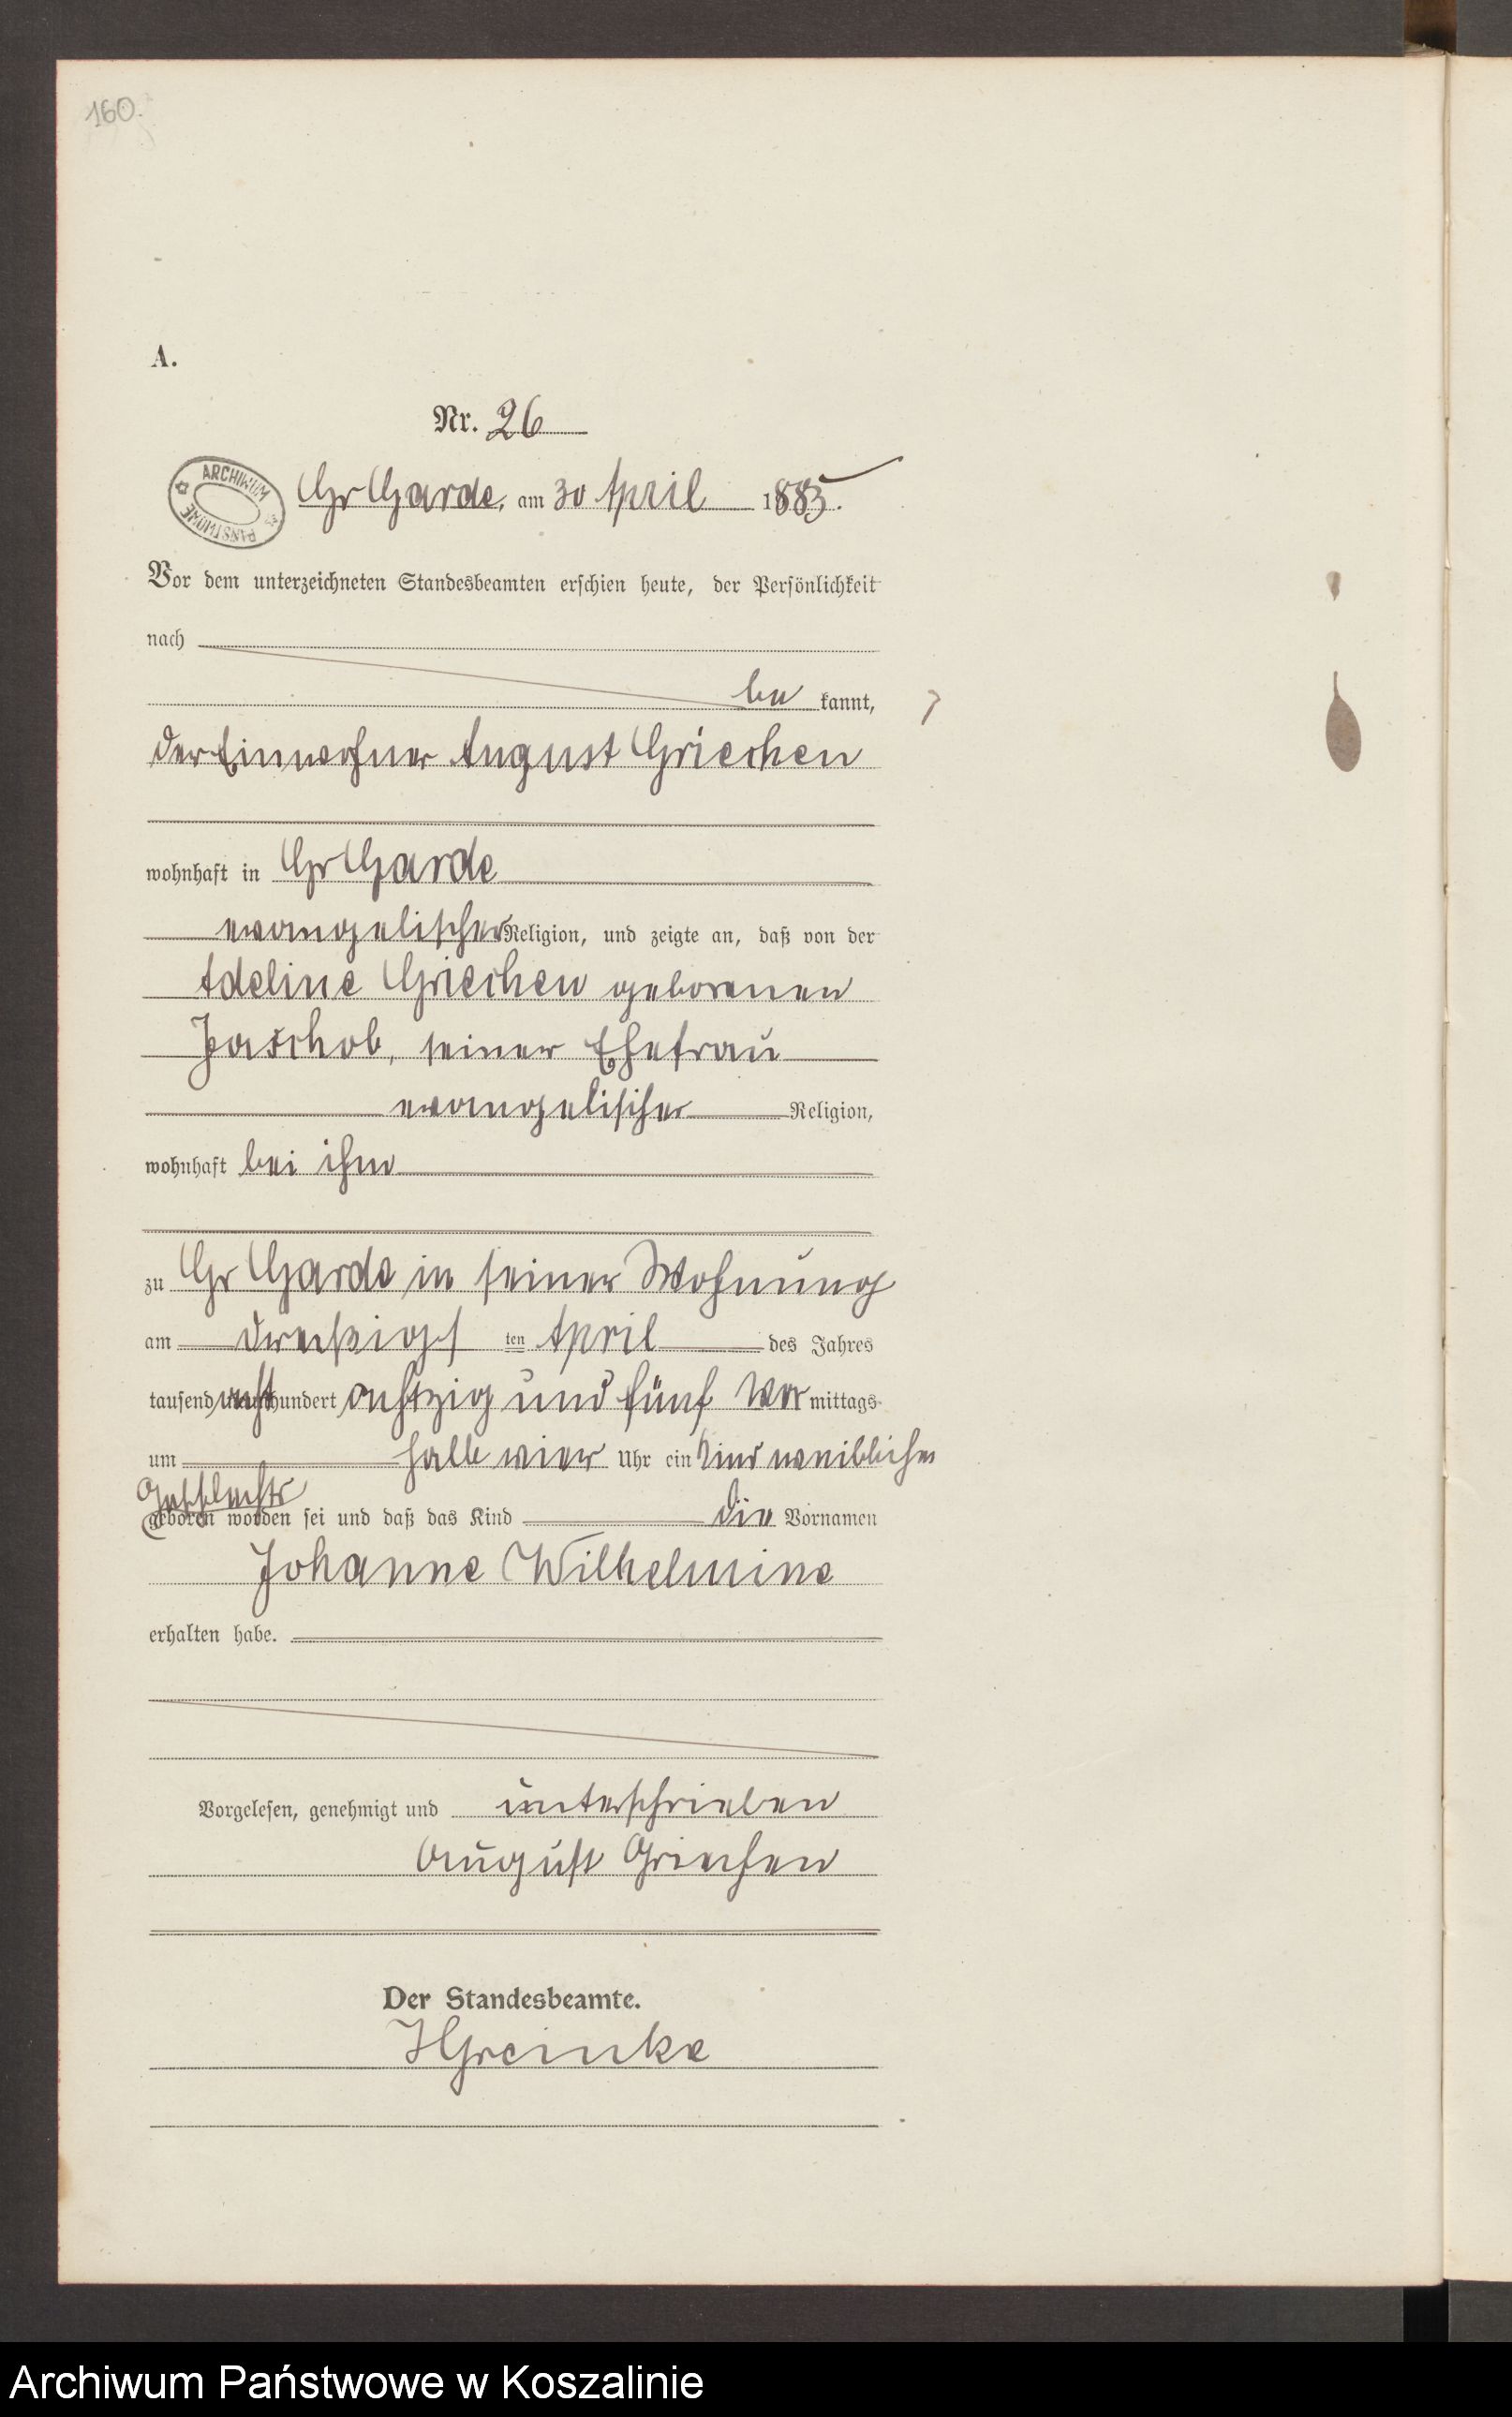 160.
A.
Nr. 26
ARCHIWUM PAŃSTWOWE
Gr Garde, am 30 April 1885.
Vor dem unterzeichneten Standesbeamten erschien heute, der Persönlichkeit
nach
be kannt,
der Einwohner August Griechen
wohnhaft in Gr Garde
evangelischer Religion, und zeigte an, daß von der
Adeline Griechen geborenen
Jaschob, seiner Ehefrau
evangelischer Religion,
wohnhaft bei ihm
zu Gr Garde in seiner Wohnung
am dreißigst ten April des Jahres
tausend acht hundert achtzig und fünf Vor mittags
um halb vier Uhr ein Kind weiblichen
Geschlechts
geboren worden sei und daß das Kind die Vornamen
Johanne Wilhelmine
erhalten habe.
Vorgelesen, genehmigt und unterschrieben
August Griechen
Der Standesbeamte.
HGreinke
Archiwum Państwowe w Koszalinie